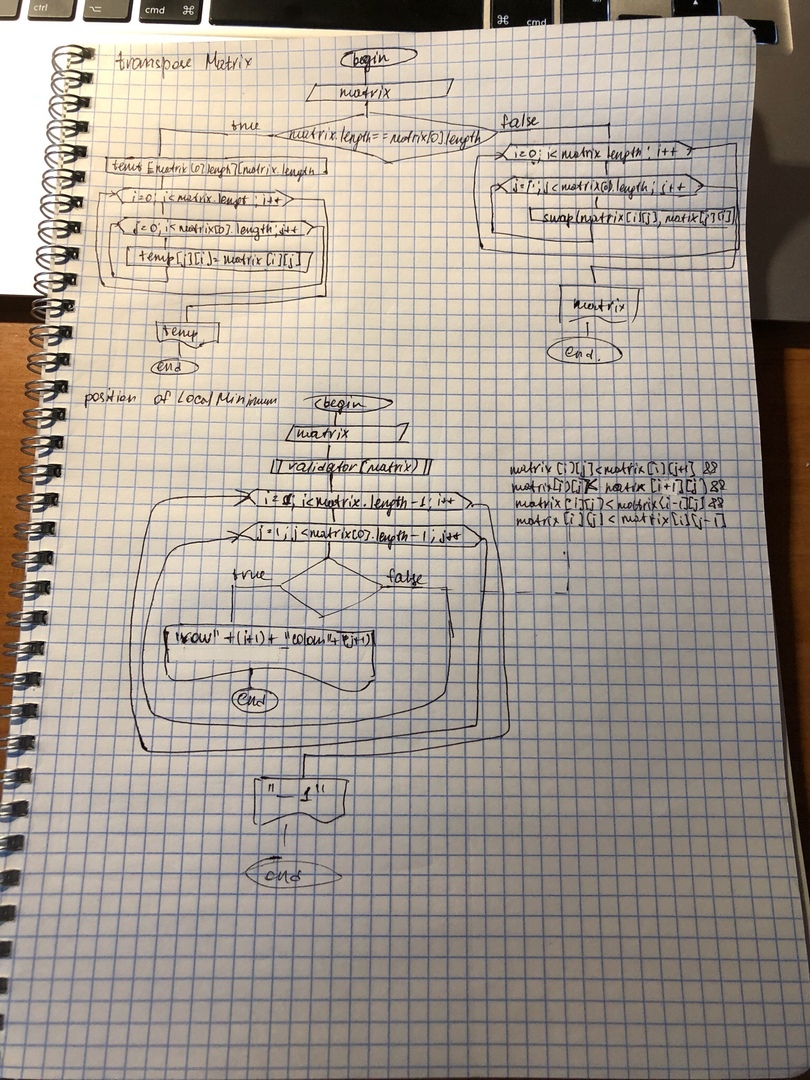 ctrl
cmd ⌘
⌘ cmd
transpose Matrix
begin
matrix
true
matrix.length==matrix[0].length
false
temp [matrix[0].length][matrix.length
i=0; i<matrix.lengt; i++
j=0; i<matrix[0].length; j++
temp[j][i]=matrix[i][j]
temp
end
i=0; i<matrix.length; i++
j=i; j<matrix[0].length; j++
swap(matrix[i][j], matrix[j][i]
matrix
end.
position of Local Minimum
begin
matrix
validator(matrix)
i=1; i<matrix.length-1; i++
j=1; j<matrix[0].length-1; j++
matrix[i][j]<matrix[i][j+1] &&
matrix[i][j]< matrix[i+1][j] &&
matrix[i][j]<matrix[i-1][j] &&
matrix[i][j]<matrix[i][j-1]
true
false
"row"+(i+1)+ "colom"+(j+1)
end
"-1"
end